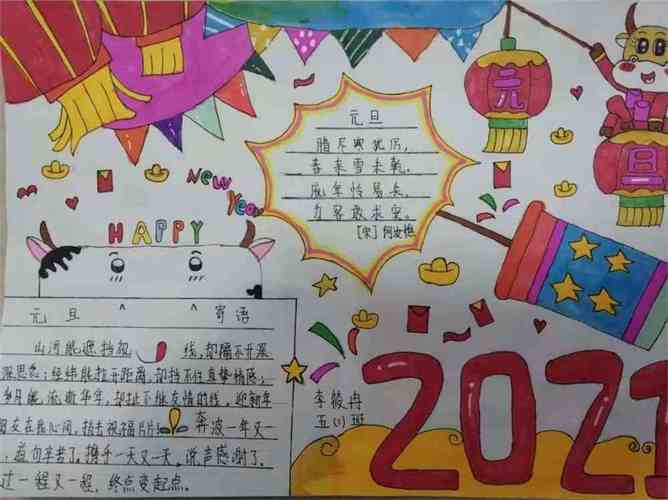 元旦
腊尽寒犹厉,
春来雪未乾。
年怜易失,
为客敢求安。
[宋]何
元
旦
New
Year
HAPPY
元旦 寄语
山河能遮挡视线,却隔不开深
深思念;经纬能拉开距离,却挡不住真挚情感;
岁月能流逝年华,却扯不能友情的线,迎新年
朋友在我心间,点击祝福片片 奔波一年又一
道句辛苦了。携手一天又一天,说声感谢了。
过一程又一程,终点变起点。
李 冉
五(1)班
2021